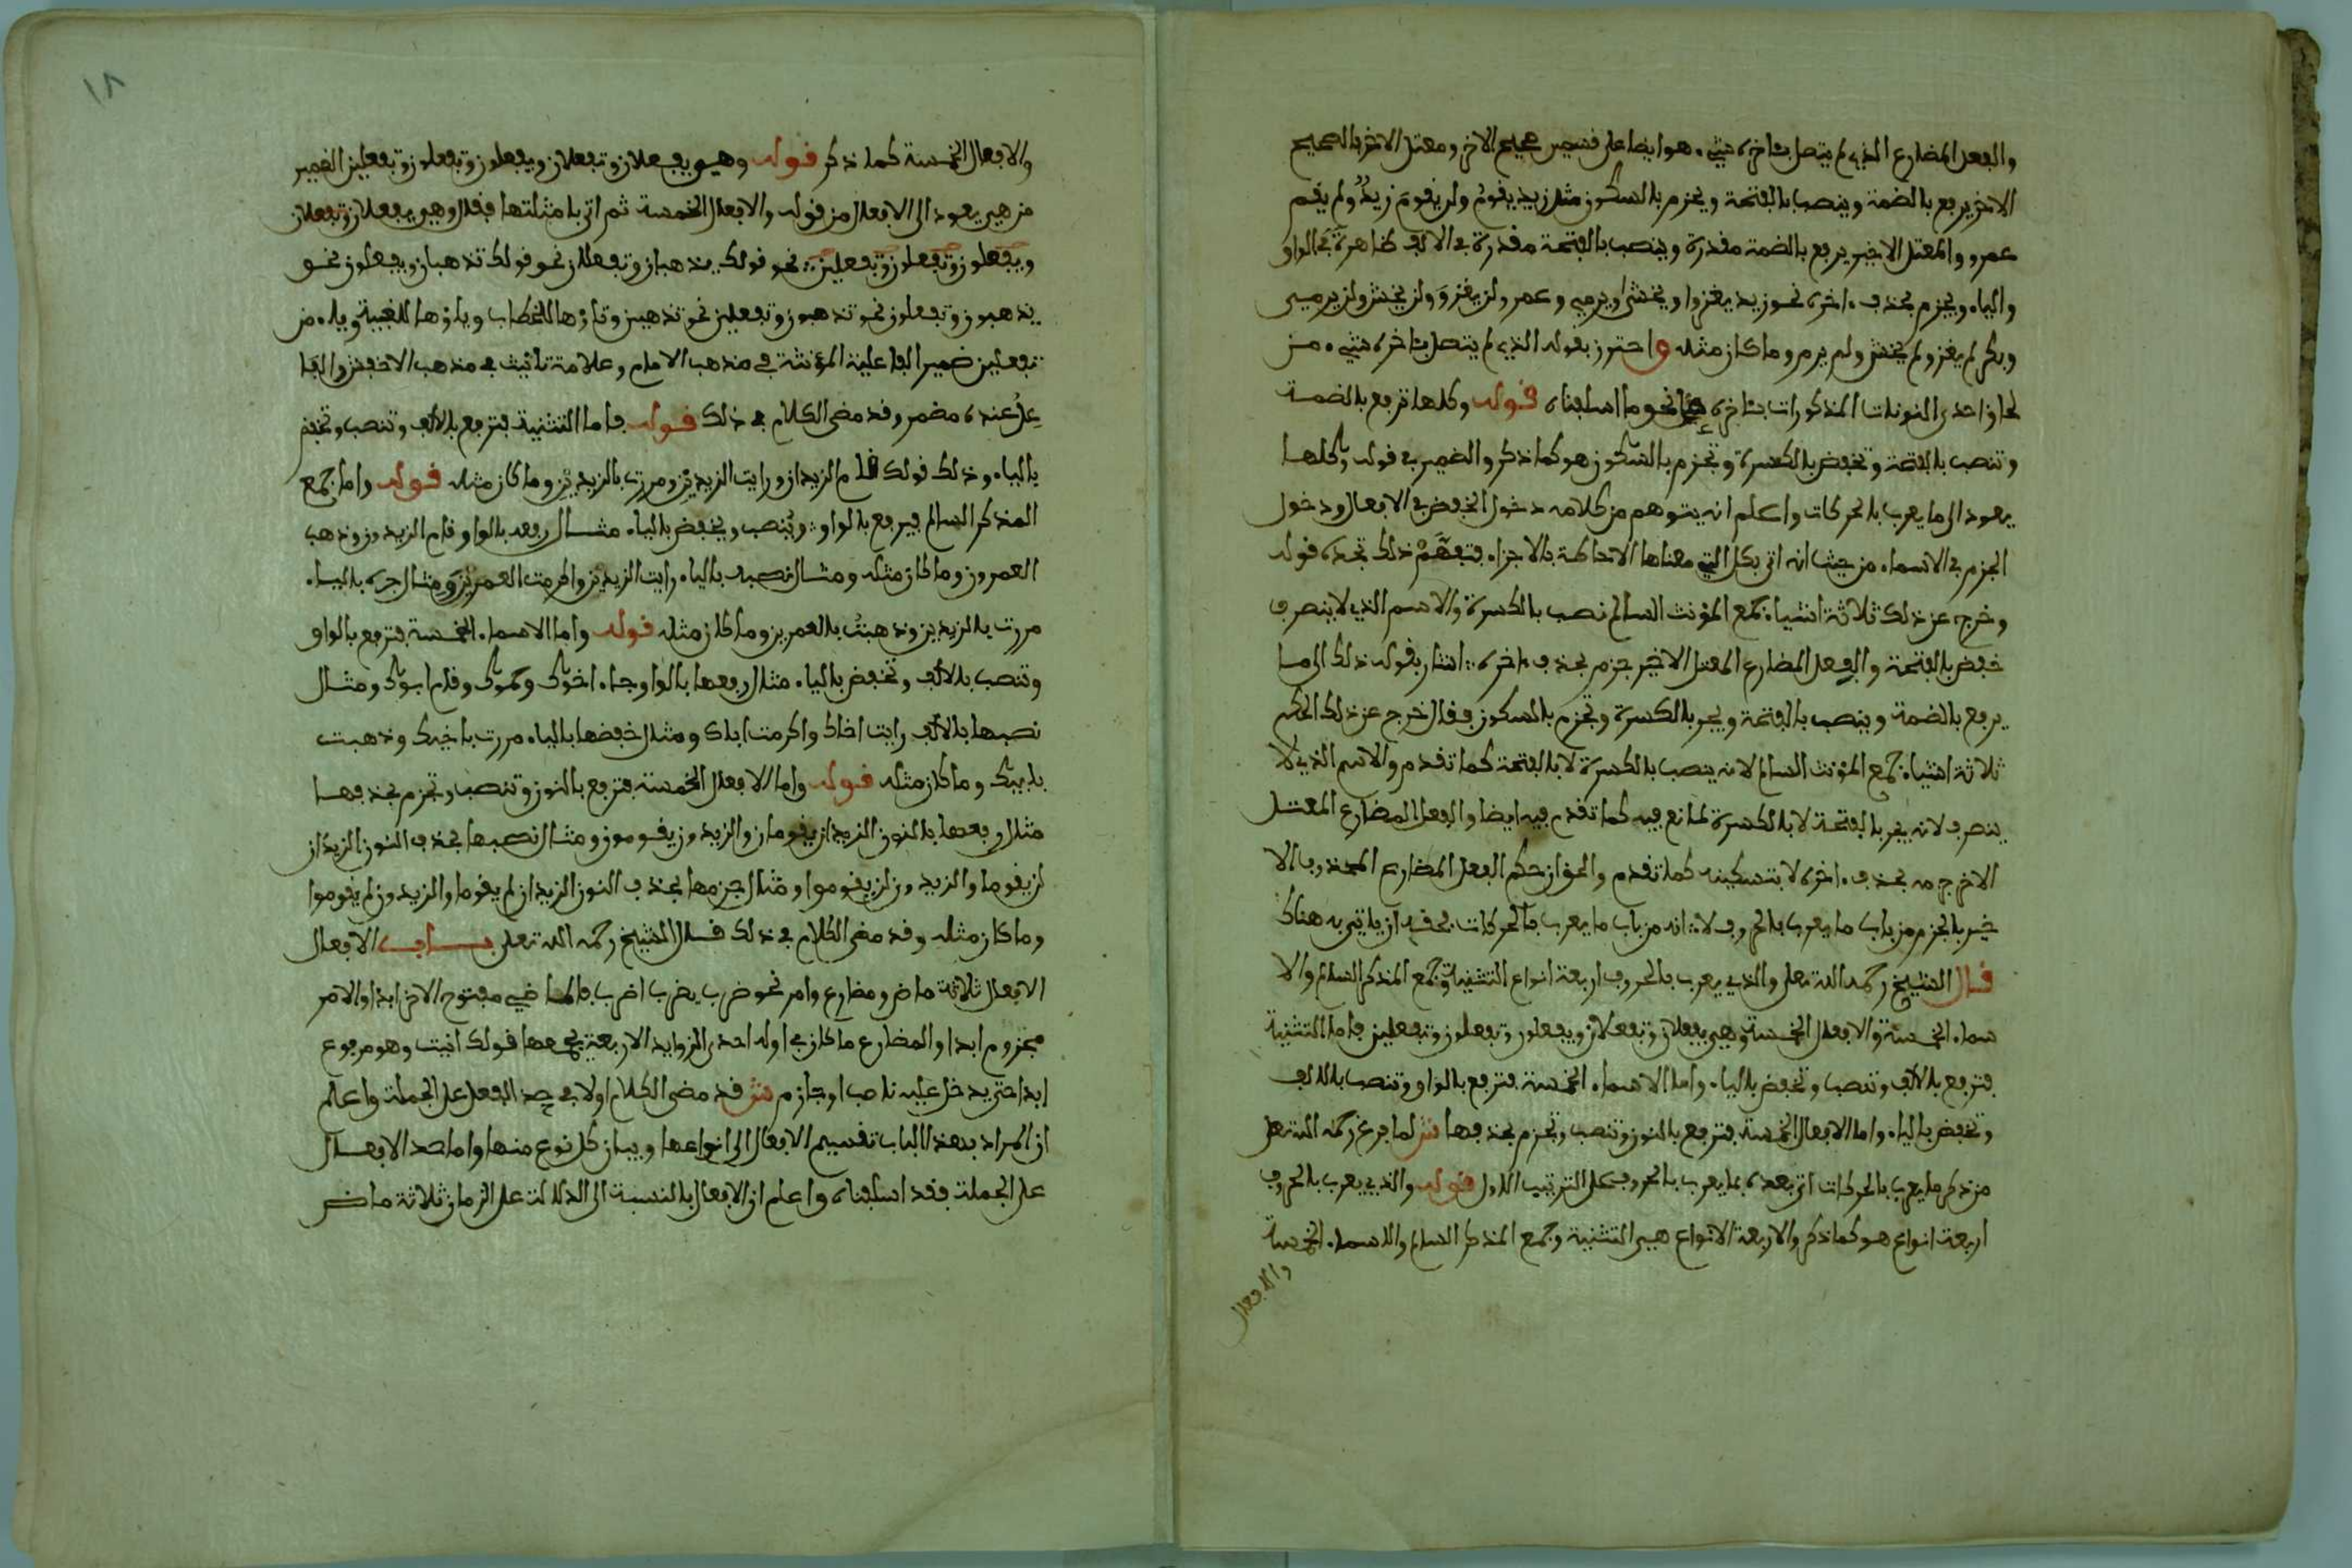 والفعل المضارع الذي لم يتصل بآخره شيء هو ايضا على قسمين صحيح الاخر ومعتل الاخر فالصحيح
الاخر يرفع بالضمة وينصب بالفتحة ويجزم بالسكون مثل زيد يقوم ولن يقوم زيد ولم يقم
عمرو والمعتل الاخير يرفع بالضمة مقدرة وينصب بالفتحة مقدرة في الالف ظاهرة في الواو
والياء ويجزم بحذف ءاخره نحو زيد يغزوا ويخشى ويرمي وعمر ولن يغزو ولن يخش ولن يرمي
وبكر لم يغز ولم يخش ولم يرم وما كان مثله واحترز بقوله الذي لم يتصل بآخره شيء من
لحاق احدى النونات المذكورات بآخره نحو ما اسلفناه قوله وكلها ترفع بالضمة
وتنصب بالفتحة وتخفض بالكسرة وتجزم بالسكون هو كما ذكر والضمير في قوله وكلها
يعود الى ما يعرب بالحركات واعلم انه يتوهم من كلامه دخول الخفض في الافعال ودخول
الجزم في الاسماء من حيث انه اتى بكل التي معناها الاحاطة بالاجزاء فتفهم ذلك تجده قوله
وخرج عن ذلك ثلاثة اشياء جمع المؤنث السالم نصب بالكسرة والاسم الذي لا ينصرف
خفض بالفتحة والفعل المضارع المعتل الاخير جزم بحذف ءاخره اشار بقوله ذلك الى ما
يرفع بالضمة وينصب بالفتحة ويجر بالكسرة وتجزم بالسكون فقال خرج عن ذلك الحكم
ثلاثة اشياء جمع المؤنث السالم لانه ينصب بالكسرة لا بالفتحة كما تقدم والاسم الذي لا
ينصرف لانه يجر بالفتحة لا بالكسرة لمانع فيه كما تقدم فيه ايضا والفعل المضارع المعتل
الاخر جزمه بحذف ءاخره لا بتسكينه كما تقدم والحق ان حكم الفعل المضارع المحذوف الا
خير بالجزم من باب ما يعرب بالحروف لا انه من باب ما يعرب بالحركات فحقه ان ياتي به هناك
قال الشيخ رحمه الله تعلى والذي يعرب بالحروف اربعة انواع التثنية وجمع المذكر السالم والا
سماء الخمسة والافعال الخمسة وهي يفعلان وتفعلان ويفعلون وتفعلون وتفعلين فاما التثنية
فترفع بالالف وتنصب وتخفض بالياء واما الاسماء الخمسة فترفع بالواو وتنصب بالالف
وتخفض بالياء واما الافعال الخمسة فترفع بالنون وتنصب وتجزم بحذفها ش لما فرغ رحمه الله تعلى
من ذكر ما يعرب بالحركات اتى بعده بما يعرب بالحروف على الترتيب الاول قوله والذي يعرب بالحروف
اربعة انواع هو كما ذكر والاربعة الانواع هي التثنية وجمع المذكر السالم والاسماء الخمسة
والافعال
١٨
والافعال الخمسة كما ذكر قوله وهي يفعلان وتفعلان ويفعلون وتفعلون وتفعلين الضمير
من هي يعود الى الافعال من قوله والافعال الخمسة ثم اتى بامثلتها فقال وهي يفعلان وتفعلان
ويفعلون وتفعلون وتفعلين نحو قولك يذهبان وتفعلان نحو قولك تذهبان ويفعلون نحو
يذهبون وتفعلون نحو تذهبون وتفعلين نحو تذهبين وتاؤها للخطاب وياؤها للغيبة وياء من
تفعلين ضمير الفاعلية المؤنثة في مذهب الامام وعلامة تأنيث في مذهب الاخفش والفا
عل عنده مضمر وقد مضى الكلام في ذلك قوله فاما التثنية فترفع بالالف وتنصب وتخفض
بالياء وذلك قولك قام الزيدان ورايت الزيدين ومررت بالزيدين وما كان مثله قوله واما جمع
المذكر السالم فيرفع بالواو وينصب ويخفض بالياء مثال رفعه بالواو قام الزيدون وذهب
العمرون وما كان مثله ومثال نصبه بالياء رايت الزيدين واكرمت العمرين ومثال جره بالياء
مررت بالزيدين وذهبت بالعمرين وما كان مثله قوله واما الاسماء الخمسة فترفع بالواو
وتنصب بالالف وتخفض بالياء مثال رفعها بالواو جاء اخوك وحموك وقام ابوك ومثال
نصبها بالالف رايت اخاك واكرمت اباك ومثال خفضها بالياء مررت باخيك وذهبت
بابيك وما كان مثله قوله واما الافعال الخمسة فترفع بالنون وتنصب وتجزم بحذفها
مثال رفعها بالنون الزيدان يقومان والزيدون يقومون ومثال نصبها بحذف النون الزيدان
لن يقوما والزيدون لن يقوموا ومثال جزمها بحذف النون الزيدان لم يقوما والزيدون لم يقوموا
وما كان مثله وقد مضى الكلام في ذلك قال الشيخ رحمه الله تعلى باب الافعال
الافعال ثلاثة ماض ومضارع وامر نحو ضرب يضرب اضرب فالماضي مفتوح الاخر ابدا والامر
مجزوم ابدا والمضارع ما كان في اوله احدى الزوايد الاربعة يجمعها قولك انيت وهو مرفوع
ابدا حتى يدخل عليه ناصب او جازم ش قد مضى الكلام اولا في حد الفعل على الجملة واعلم
ان المراد بهذا الباب تقسيم الافعال الى انواعها وبيان كل نوع منها واما حد الافعال
على الجملة فقد اسلفناه واعلم ان الافعال بالنسبة الى الدلالة على الزمان ثلاثة ماض